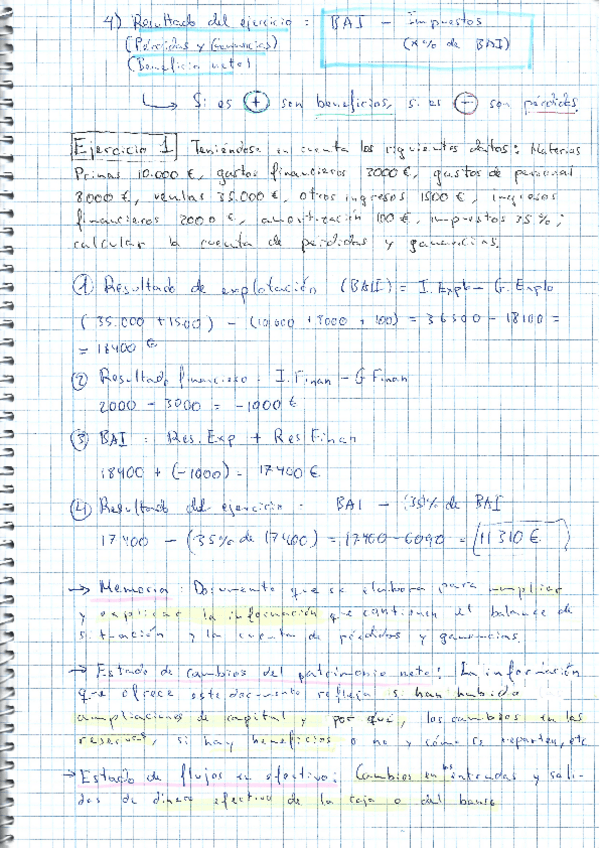 4) Resultado del ejercicio : BAI - Impuestos
(Pérdidas y Ganancias) (x% de BAI)
(Beneficio neto)
Si es + son beneficios, si es - son pérdidas.
Ejercicio 1 Teniéndose en cuenta los siguientes datos: Materias
Primas 10.000 €, gastos financieros 3000 €, gastos de personal
8000 €, ventas 35.000 €, otros ingresos 1500 €, ingresos
financieros 2000 €, amortización 100 €, impuestos 35%;
calcular la cuenta de pérdidas y ganancias.
1 Resultado de explotación (BAII) = I. Explo - G. Explo
(35.000 + 1500) - (10000 + 8000 + 100) = 36500 - 18100 =
= 18400 €
2 Resultado financiero : I. Finan - G Finan
2000 - 3000 = -1000 €
3 BAI : Res. Exp + Res Finan
18400 + (-1000) = 17400 €
4 Resultado del ejercicio = BAI - 35% de BAI
17400 - (35% de 17400) = 17400 - 6090 = 11310 €
→ Memoria : Documento que se elabora para ampliar
y explicar la información que contienen el balance de
situación y la cuenta de pérdidas y ganancias.
→ Estado de cambios del patrimonio neto: La información
que ofrece este documento refleja si han habido
ampliaciones de capital y por qué, los cambios en las
reservas, si hay beneficios o no y cómo se reparten, etc
→ Estado de flujos en efectivo: Cambios en las entradas y sali-
das de dinero efectivo de la caja o del banco